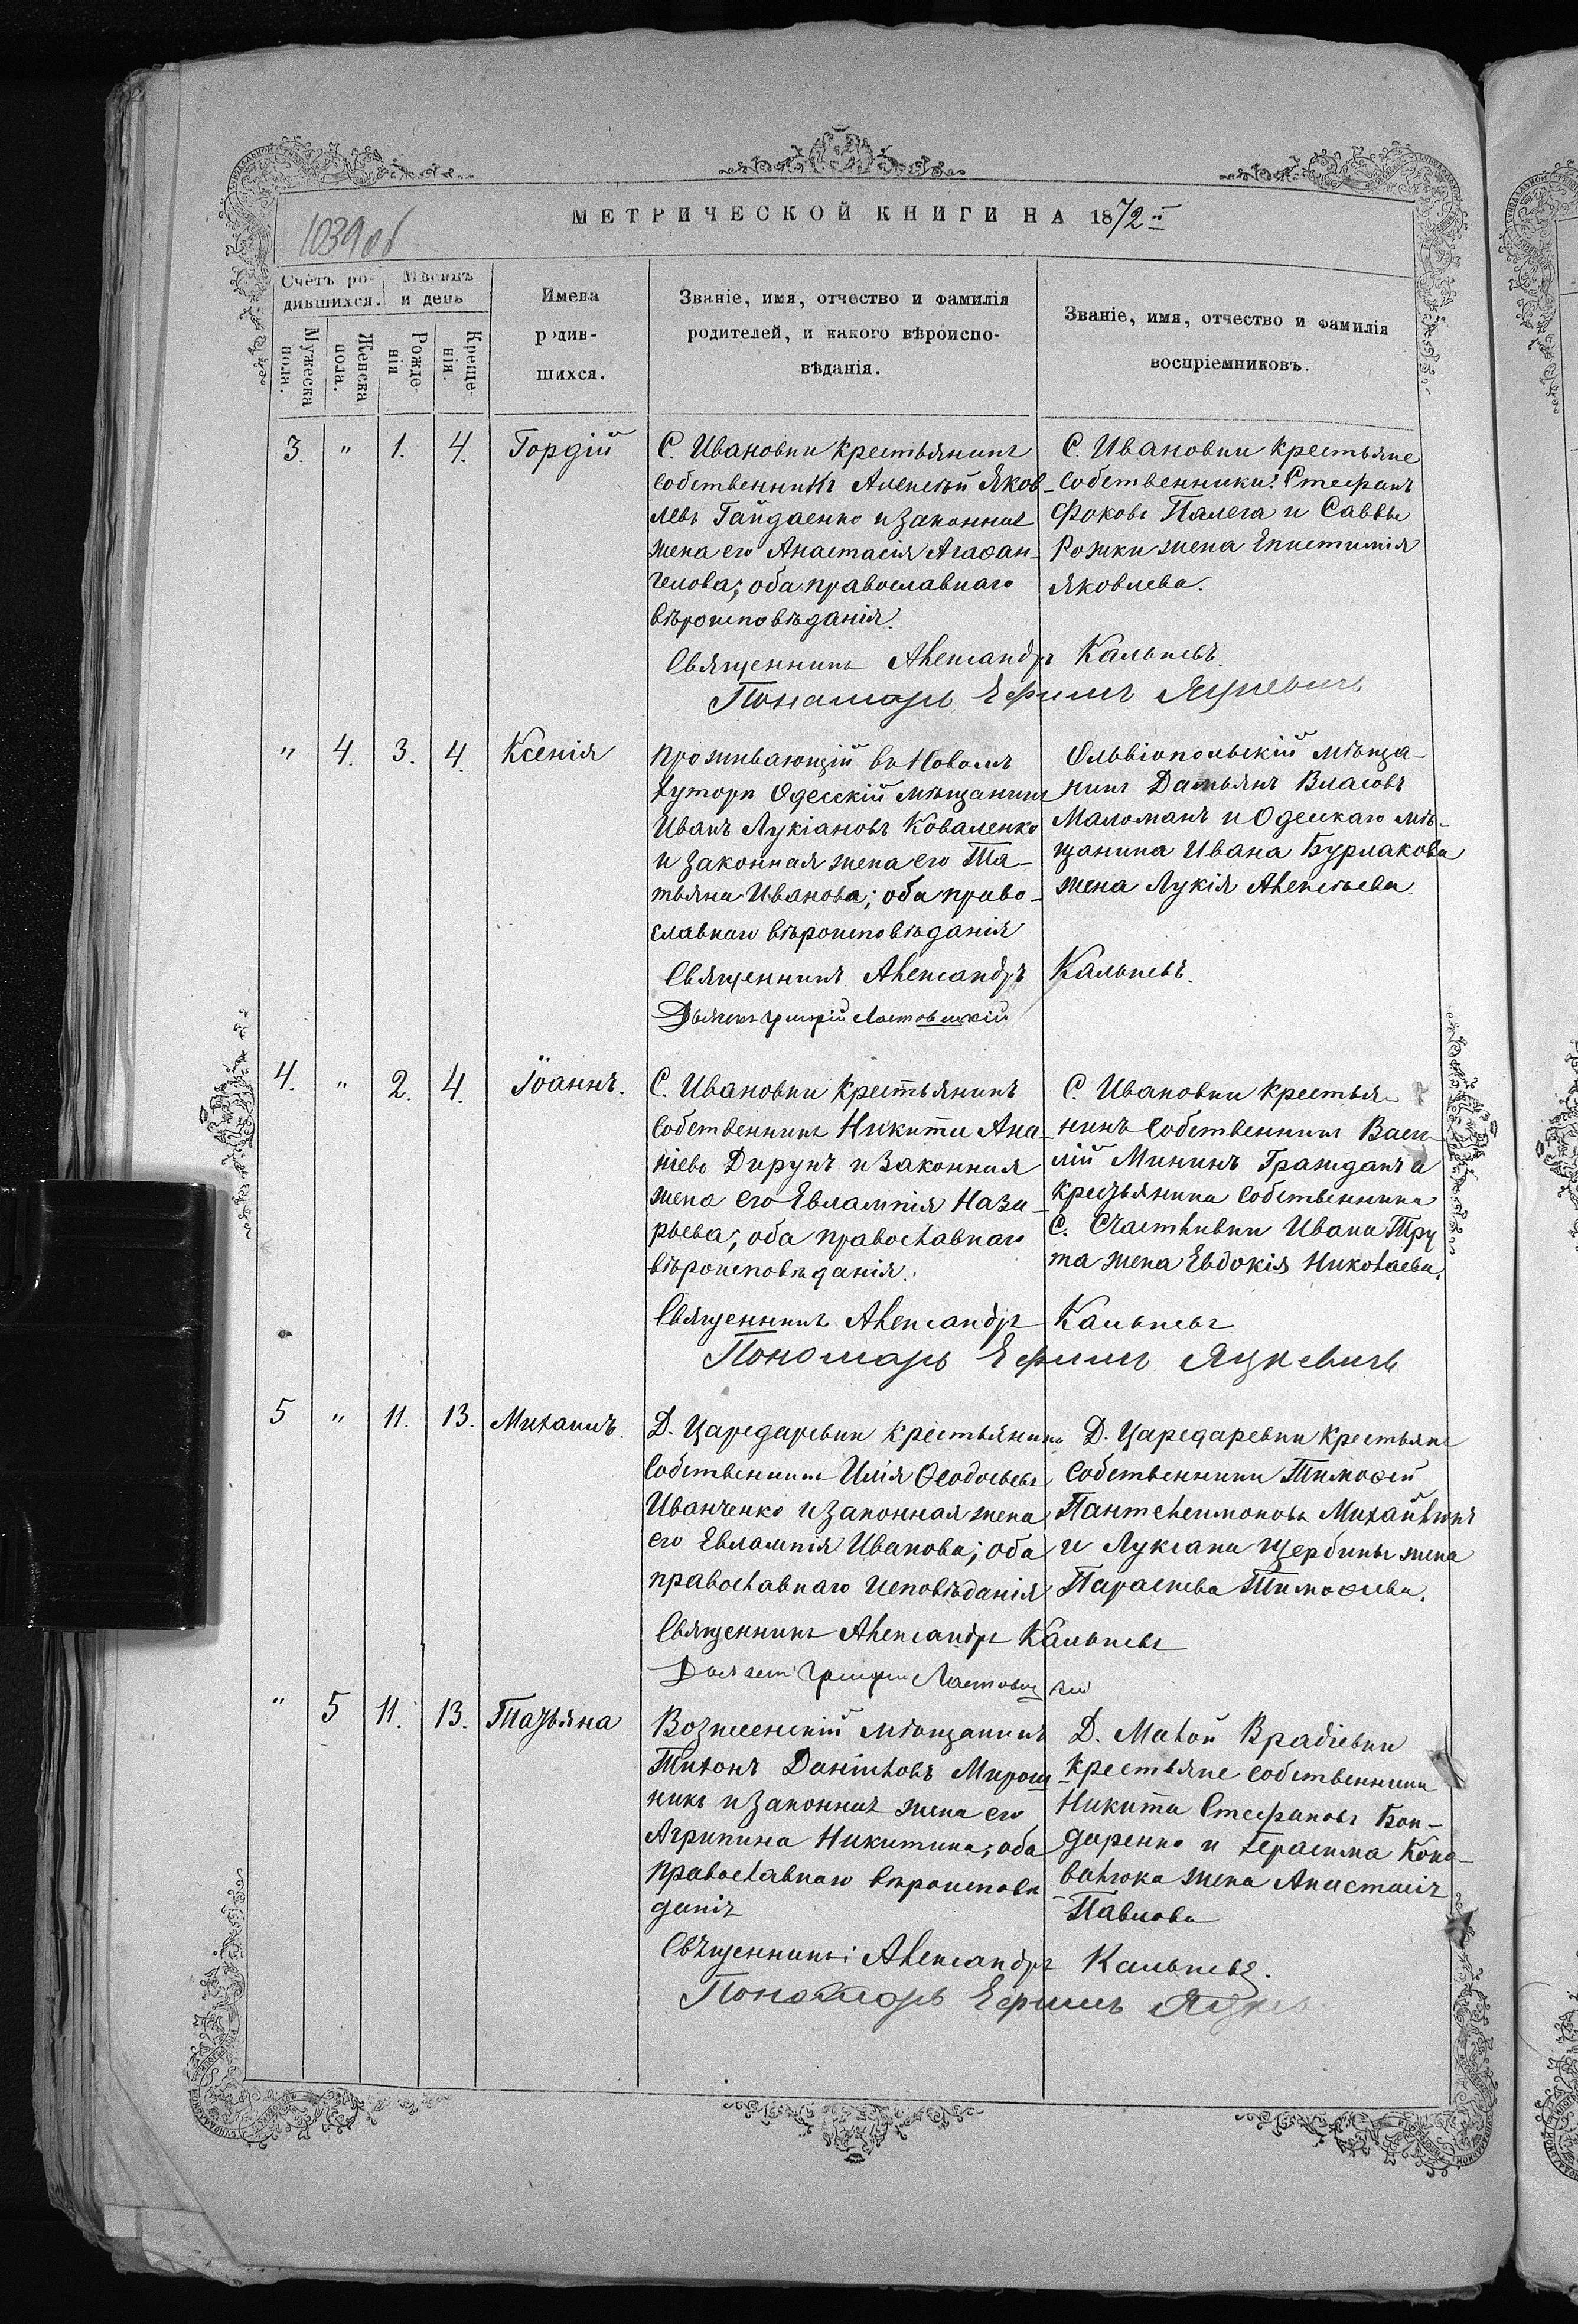 МЕТРИЧЕСКОЙ КНИГИ НА 1872 й
1039 об
Счетъ ро-
дившихся.
Мѣсяцъ
и день
Мужеска
пола.
Женска
пола.
Рожде-
нія
Креще-
нія.
Имена
родив-
шихся.
Званіе, имя, отчество и фамилія
родителей, и какого вѣроиспо-
вѣданія.
Званіе, имя, отчество и фамилія
воспріемниковъ.
3. " 1. 4. Гордій
С. Ивановки крестьянинъ
собственникъ Алексѣй Яков-
левъ Гайдаенко и законная
жена его Анастасія Агафан-
гелова; оба православнаго
вѣроисповѣданія.
С. Ивановки крестьяне
собственники: Стефанъ
Фоковъ Палега и Саввы
Рожки жена Епистимія
Яковлева.
Священникъ Александръ Кальневъ.
Пономарь Ефимъ Яцкевичъ
" 4. 3. 4. Ксенія
Проживающій въ Новомъ
хуторѣ Одесскій мѣщанинъ
Иванъ Лукіановъ Коваленко
и законная жена его Та-
тьяна Иванова; оба право-
славнаго вѣроисповѣданія
Ольвіопольскій мѣща-
нинъ Дамьянъ Власовъ
Маломанъ и Одескаго мѣ-
щанина Ивана Бурлакова
жена Лукія Алексѣева
Священникъ Александръ Кальневъ.
Дьячекъ Григорій Ластовецкій
4. " 2. 4. Іоаннъ.
С. Ивановки крестьянинъ
собственникъ Никита Ана-
ніевъ Дирунъ и законная
жена его Евлампія Наза-
рьева; оба православнаго
вѣроисповѣданія.
С. Ивановки крестья-
нинъ собственникъ Васи-
лій Мининъ Гражданъ и
крестьянина собственника
С. Счастливки Ивана Тру
та жена Евдокія Николаева.
Священникъ Александръ Кальневъ
Пономарь Ефимъ Яцкевичъ
5 " 11. 13. Михаилъ.
Д. Царедаревки крестьянинъ
собственникъ Илія Ѳеодосьевъ
Иванченко и законная жена
его Евлампія Иванова; оба
православнаго исповѣданія
Д. Царедаревки крестьяне
собственники Тимоѳей
Пантелеимоновъ Михайлюкъ
и Лукіана Щербины жена
Параскева Тимоѳеева.
Священникъ Александръ Кальневъ
Дьячекъ Григорій Ластовецкій
" 5 11. 13. Татьяна
Вознесенскій мѣщанинъ
Тихонъ Даніиловъ Мирош
никъ и законная жена его
Агрипина Никитина; оба
православнаго вѣроисповѣ
данія
Д. Малой Врадіевки
крестьяне собственники
Никита Стефановъ Бон-
даренко и Герасима Коно-
валюка жена Анастасія
Павлова
Священникъ Александръ Кальневъ.
Пономарь Ефимъ